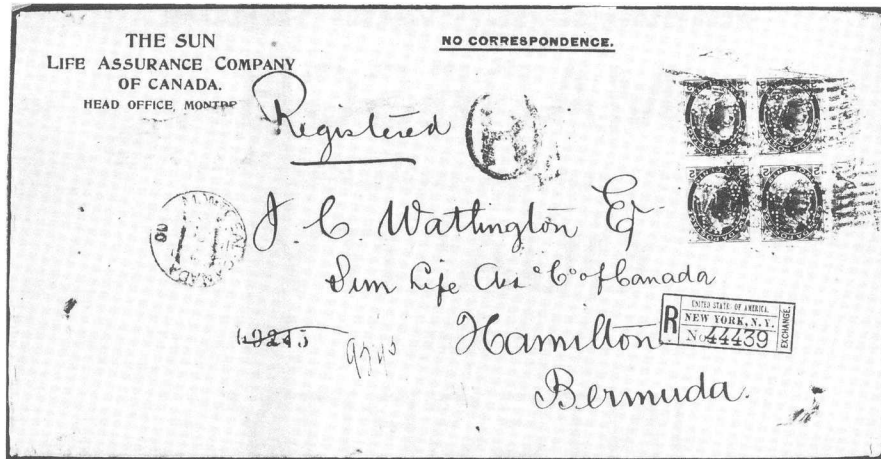 THE SUN
LIFE ASSURANCE COMPANY
OF CANADA.
HEAD OFFICE,
NO CORRESPONDENCE.
Registered
R
J. C. Watlington
Sun Life Ass. Co of Canada
Hamilton
Bermuda.
R
UNITED STATES OF AMERICA.
NEW YORK, N.Y.
No 44439
EXCHANGE.
CANADA
9595